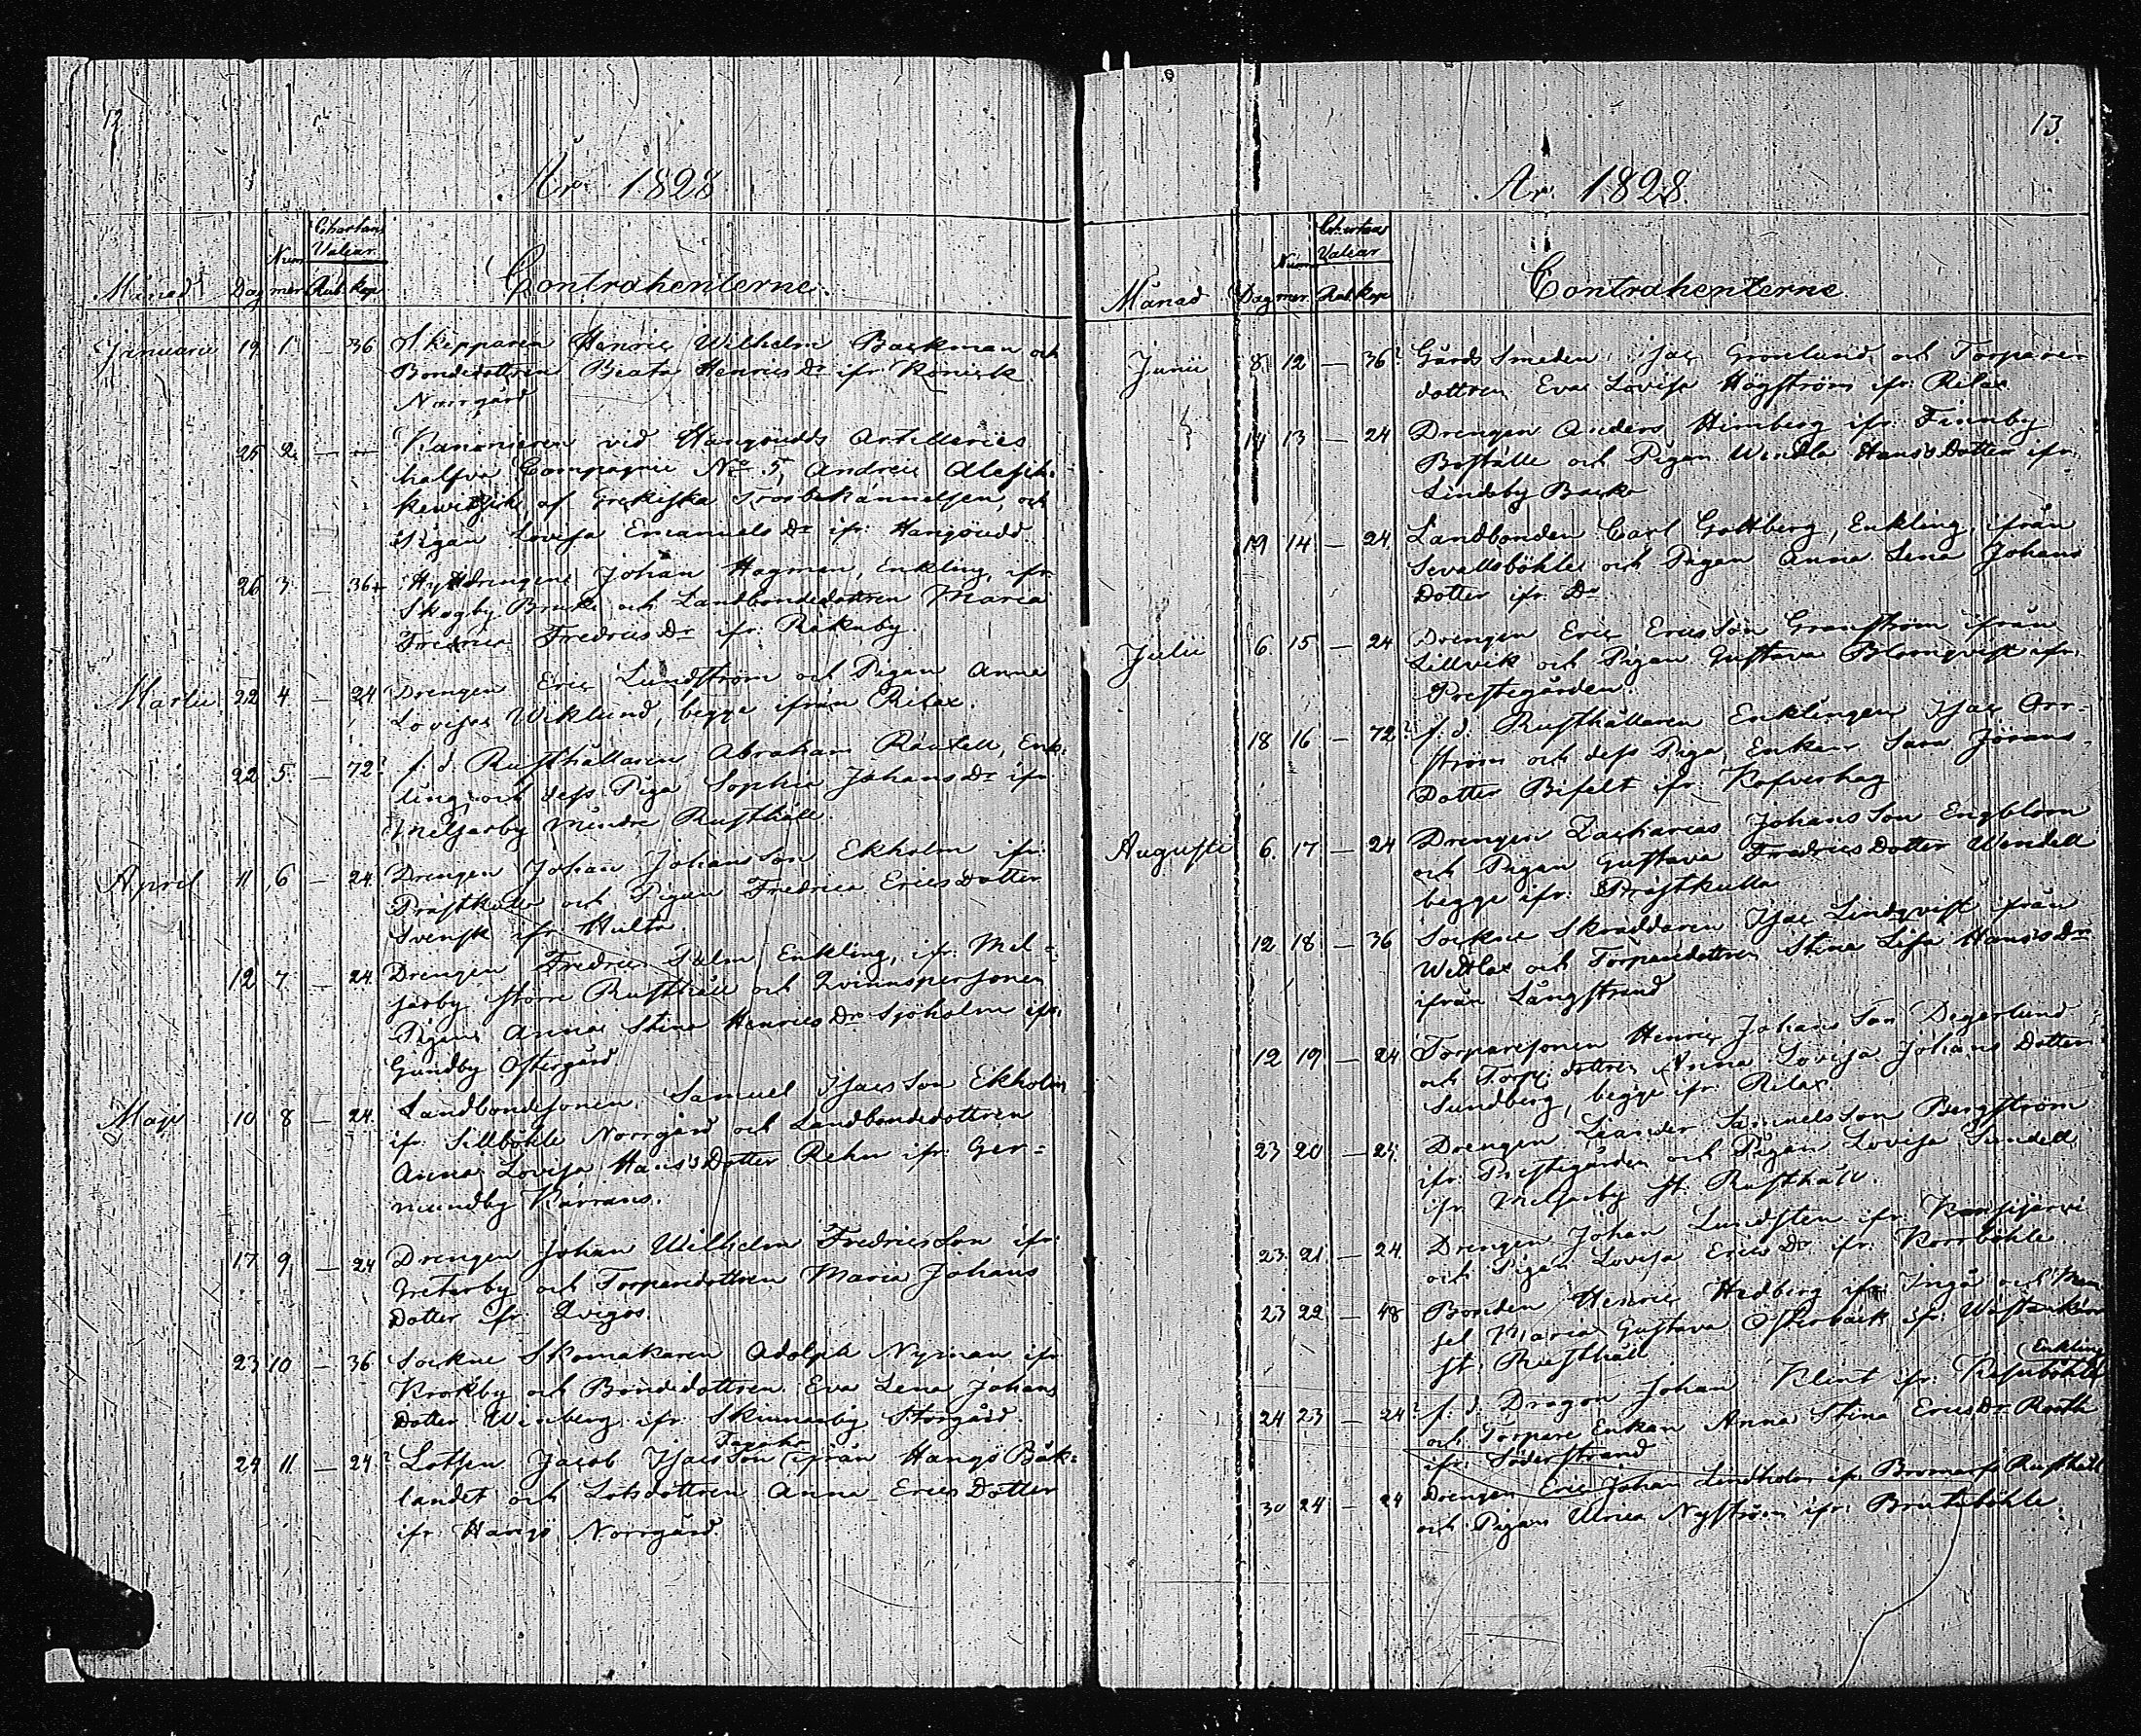 12
År 1828
Chartans
Num Valeur
Månad Dag mer Rub. Kop Contrahenterne.
Januarii 19 1 — 36 Skepparen Henric Wilhelm Backman och
Bondedottren Beata Henrics Dr ifr.
Norrgård
25 2 — — Kanonieren vid Hangöudds Artilleries
halfva Compagnie No 5, Andreie
af Grekiska Trosbekännelsen, och
Pigan Lovisa Emanuels Dr ifr. Hangöudd.
26 3 — 36 Johan Hagman, Enkling, ifr.
Skogby Bruk och Landbondedottren Maria
Fredrica Fredrics Dr ifr.
Martii 22 4 — 24 Drengen Eric Lundström och Pigan Anna
Lovisa Wiklund, begge ifrån Rilax.
22 5 — 72? f. d. Rusthållaren Abraham Enk-
ling, och dess Piga Sophia Johans Dr ifr.
Meljarby mindre Rusthåll.
April 11 6 — 24 Drengen Johan Johansson Ekholm ifr.
Prästkulla och Pigan Fredrica Erics Dotter
Svensk ifr. Hulta
12 7 — 24 Drengen Fredric Palm, Enkling, ifr. Mel-
jarby störra Rusthåll och Qvinnspersonen
Pigan Anna Stina Henrics Dr Sjöholm ifr.
Gundby Östergård
Maji 10 8 — 24 Landbondesonen Samuel Isacsson Ekholm
ifr. Sillböhle Norrgård och Landbondedottren
Anna Lovisa Hans's Dotter Rehn ifr. Ger-
mundby Kärrans.
17 9 — 24 Drengen Johan Wilhelm Fredricsson ifr.
Gretarby och Torparedottren Maria Johans
Dotter ifr.
23 10 — 36 Sockne Skomakaren Adolph Nyman ifr.
Krokby och Bondedottren Eva Lena Johans
Dotter Winberg ifr. Skinnarby Storgård.
24 11 — 24? Lotsen Jacob Isacsson ifrån Hangö Båk-
landet och Lotsdottren Anna Erics Dotter
ifr. Hangö Norrgård
13
År 1828.
Chartans
Num Valeur
Månad Dag mer Rub. Kop Contrahenterne
Junii 8 12 — 36? Gårds Smeden Isac Grönlund och Torpare
dottren Eva Lovisa Högström ifr. Rilax
14 13 — 24 Drengen Anders Himberg ifr. Finnby
Boställe och Pigan Wendla Hans's Dotter ifr.
Lindsby Backe
19 14 — 24 Landbonden Carl Gottberg, Enkling, ifrån
Sevallsböhle och Pigan Anna Lena Johans
Dotter ifr. Do
Julii 6 15 — 24 Drengen Eric Ericsson Granström ifrån
Lillvik och Pigan Gustava Blomqvist ifr.
Prestegården.
18 16 — 72? f. d. Rusthållaren Enklingen Isac Orr-
ström och dess Piga Enkan Sara Jörans
Dotter Bifelt ifr. Kofverhag
Augusti 6 17 — 24 Drengen Zacharias Johansson Engblom
och Pigan Gustava Fredrics Dotter Wendell
begge ifr. Prästkulla
12 18 — 36 Sockne Skräddaren Isac Lindqvist ifrån
Wettlax och Torparedottren Stina Lisa Hans's Dr
ifrån Långstrand
12 19 — 24 Torparesonen Henric Johansson Degerlund
och Torp: dottren Anna Lovisa Johans Dotter
Sundberg, begge ifr. Rilax
23 20 — 24 Drengen Leander Samuelsson Bergström
ifr. Prestegården och Pigan Lovisa Sundell
ifr. Meljarby st. Rusthåll.
23 21 — 24 Drengen Johan Lundsten ifr.
och Pigan Lovisa Erics Dr ifr. Norrböhle
23 22 — 48 Bonden Henric Hedberg ifr. Ingå och Mam-
sel Maria Gustava Österback ifr. Westankärr
st. Rusthåll
Enkling
24 23 — 24? f. d. Dragon Johan Klint ifr.
och Torpare Enkan Anna Stina Erics Dr
ifr. Söderstrand
30 24 — 24 Drengen Eric Johan Lindholm ifr. Bromarf Rusthåll
och Pigan Ulrica Nyström ifr.